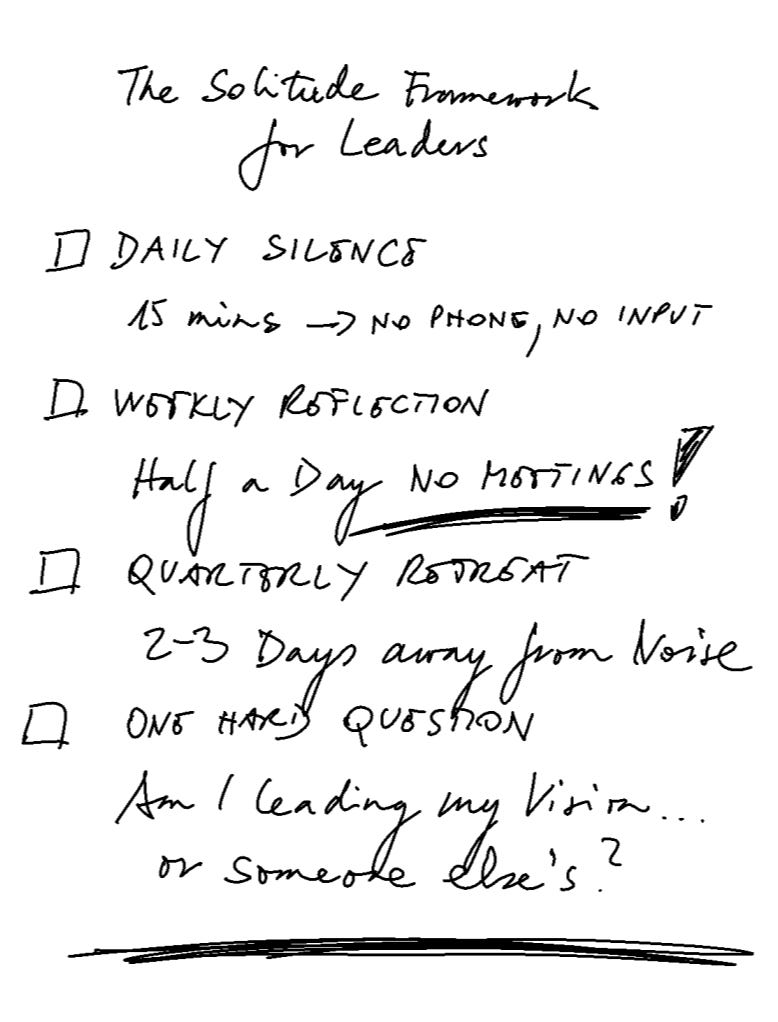 The Solitude Framework
for Leaders
DAILY SILENCE
15 mins → NO PHONE, NO INPUT
WEEKLY REFLECTION
Half a Day NO MEETINGS!
QUARTERLY RETREAT
2-3 Days away from Noise
ONE HARD QUESTION
Am I leading my Vision...
or someone else's?